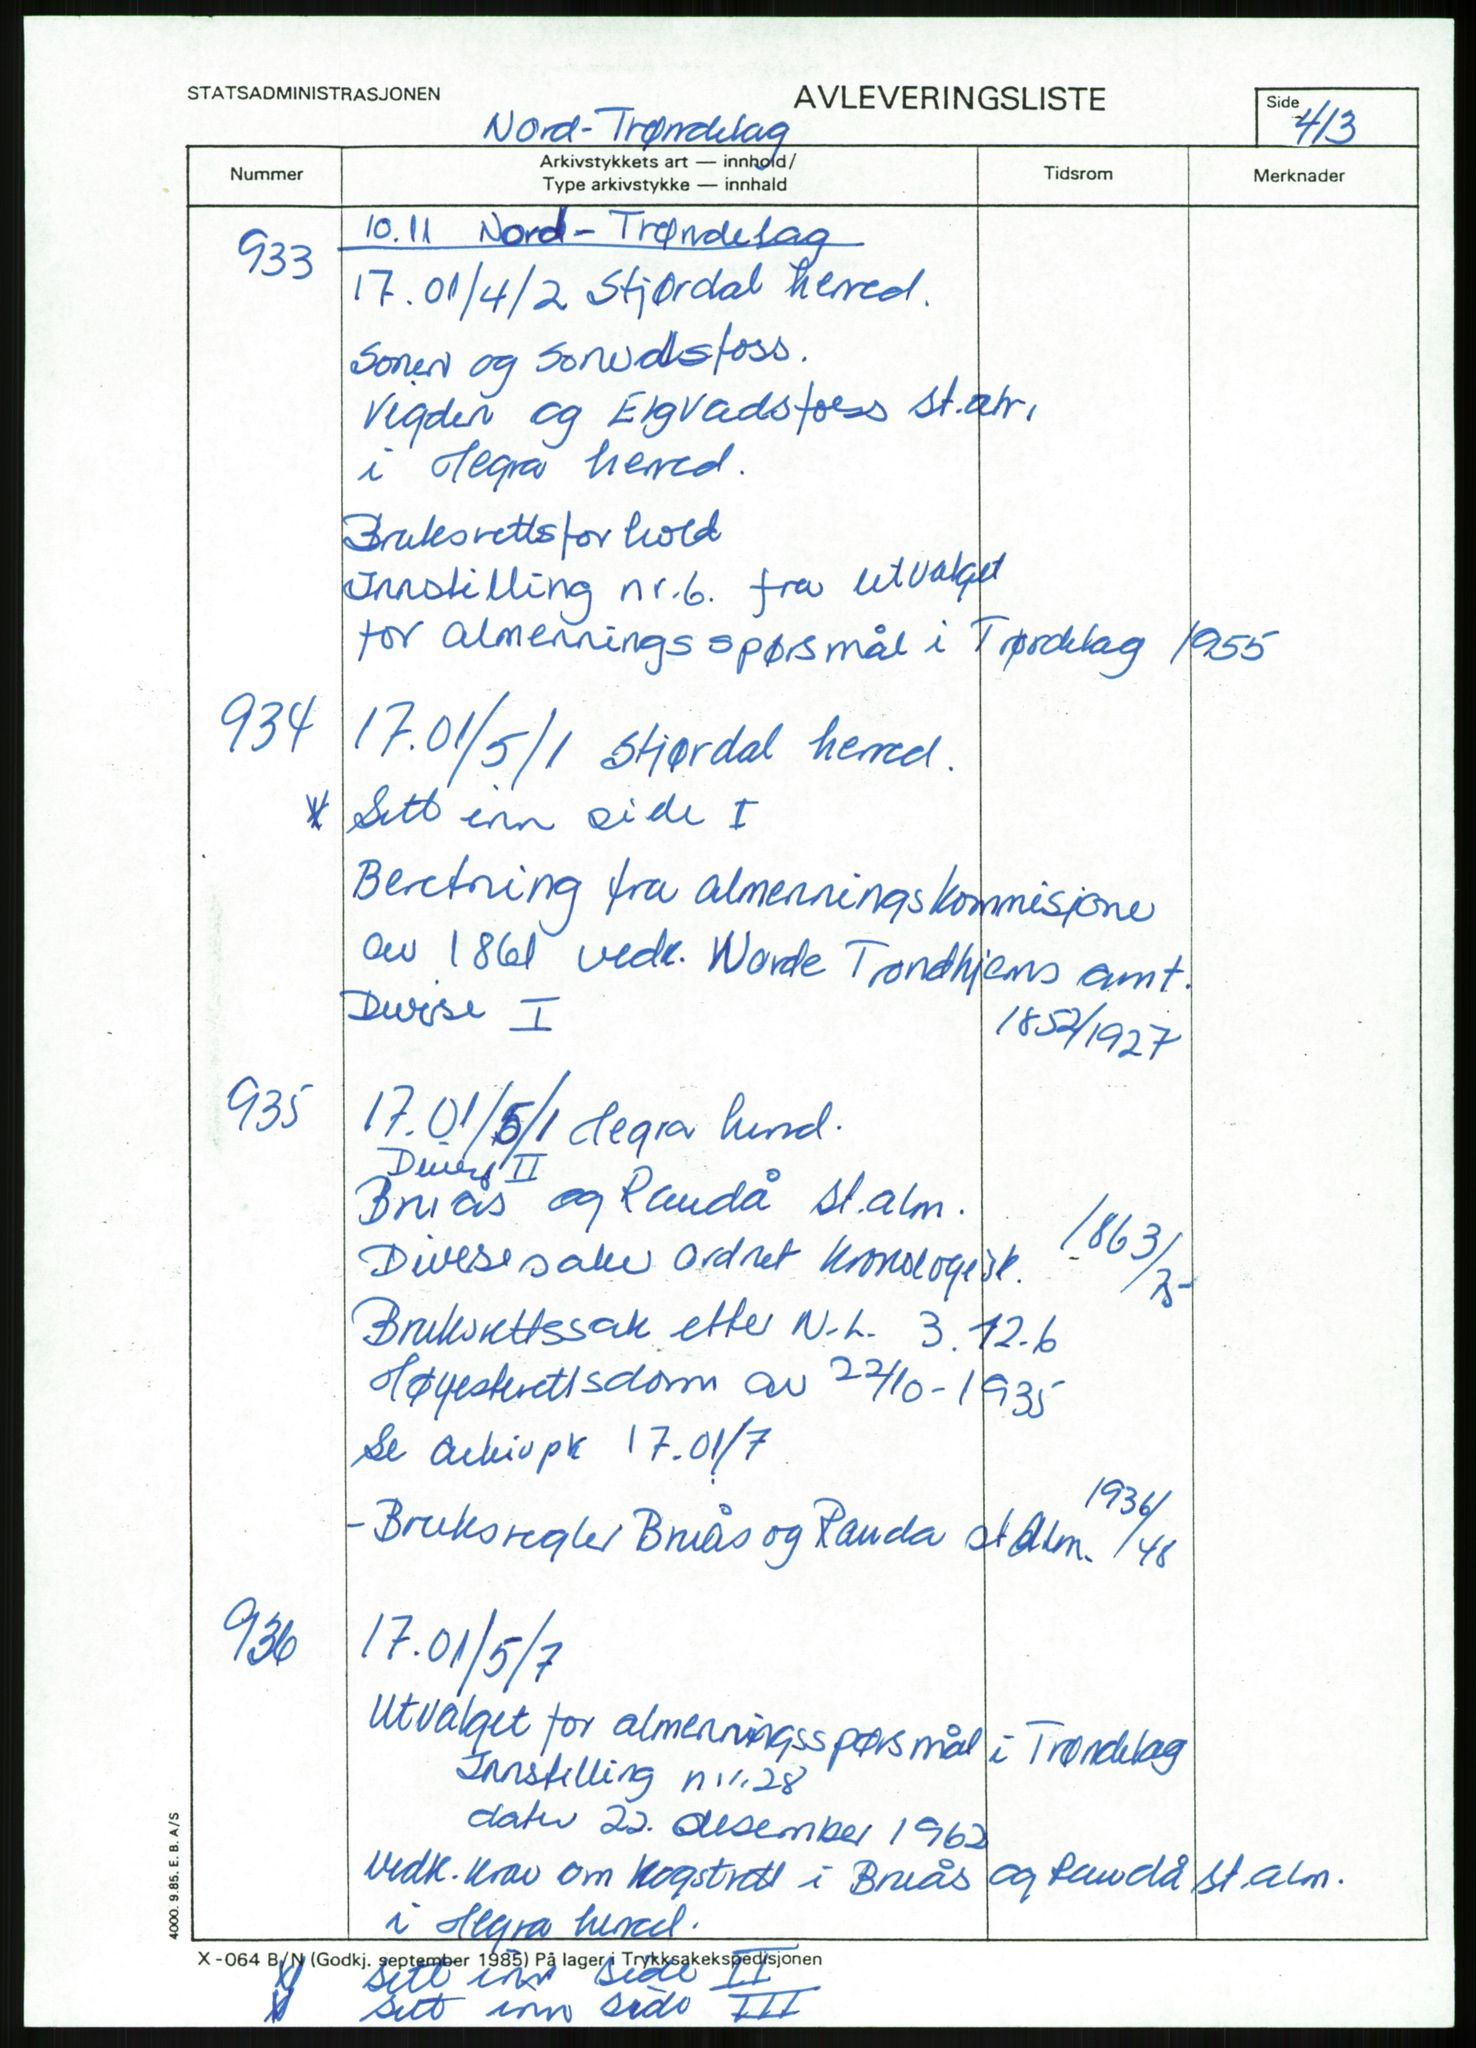 STATSADMINISTRASJONEN
AVLEVERINGSLISTE
Side 413
Nord-Trøndelag
Nummer
Arkivstykkets art — innhold/
Type arkivstykke — innhald
Tidsrom
Merknader
10.11 Nord-Trøndelag
933
17.01/4/2 Stjørdal herred.
og
og st.
i Hegra herred.
Bruksrettsforhold
Innstilling nr.6. fra utvalget
for almenningsspørsmål i Trøndelag 1955
934 17.01/5/1 Stjørdal herred.
* Sett inn side I
Beretning fra almenningskommisjone
av 1861 vedk. Nordre Trondhjems amt.
Diverse I 1852/1927
935 17.01/5/1 Hegra herred.
Diverse II
og Raudå st.alm.
Diverse saker ordnet kronologisk. 1863/75
Bruksrettssak etter N.L. 3.12.6
Høyesterettsdom av 22/10-1935
Se arkivpk 17.01/7
-Bruksregler og Rauda st alm. 1936/48
936 17.01/5/7
Utvalget for almenningsspørsmål i Trøndelag
Innstilling nr. 28
datev 22. desember 1962
vedk. krav om hogstrett i og Raudå st.alm.
i Hegra herred.
4000. 9.85. E. B. A/S
X-064 B/N (Godkj. september 1985) På lager i Trykksakekspedisjonen
sett inn side II
sett inn side III